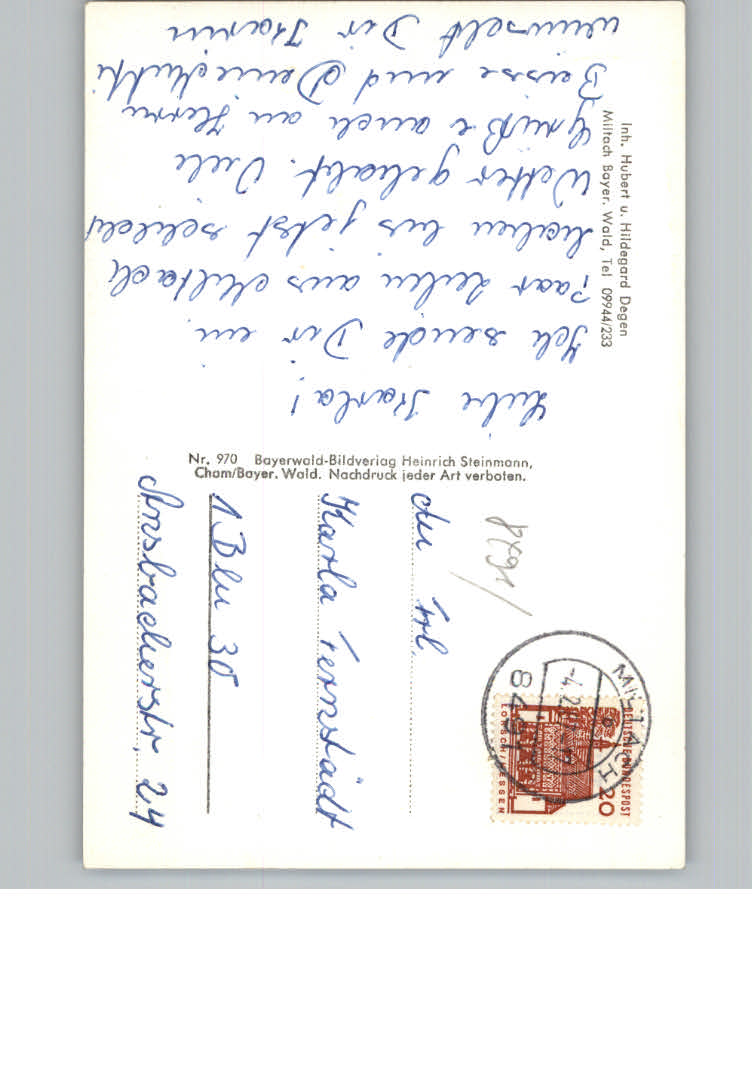 Inh. Hubert u. Hildegard Degen
Miltach Bayer. Wald, Tel 09944/233
Liebe Karla!
Ich sende Dir ein
Paar Zeilen aus Miltach
haben bis jetzt schlecht
Wetter gehabt. Viele
Grüße auch an Herrn
Beisse und
wünscht Dir Karin
Nr. 970 Bayerwald-Bildverlag Heinrich Steinmann,
Cham/Bayer. Wald. Nachdruck jeder Art verboten.
8491
An Frl.
Karla Fernstädt
1 Bln 30
Ansbacherstr. 24
MILTACH
8491
DEUTSCHE BUNDESPOST
20
LORSCH/HESSEN